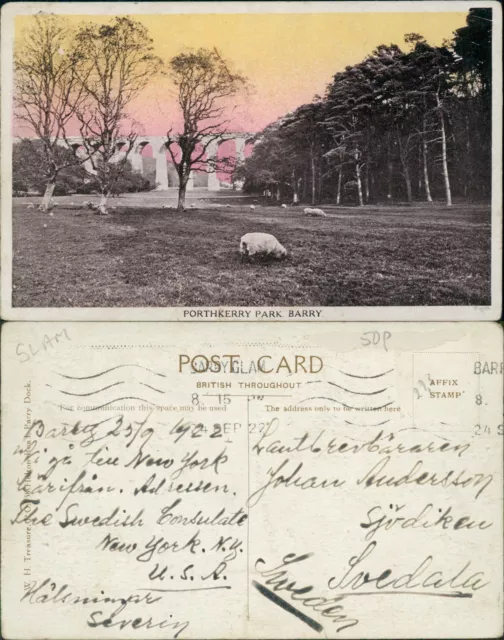 PORTHKERRY PARK, BARRY
SLAM
50P
POST CARD
BRITISH THROUGHOUT
For communication this space may be used
The address only to be written here
AFFIX
STAMP
BARRY GLAM
8. 15
SEP 22
BARR
8.
24 S
Barry 25/9 1922
Vi gå till New York
härifrån. Adressen.
The Swedish Consulate
New York. N.Y.
U.S.A.
Hälsningar
Severin
Lantbrevbäraren
Johan Andersson
Sjödiken
Svedala
Sweden
W. H. Treasure
Barry Dock.